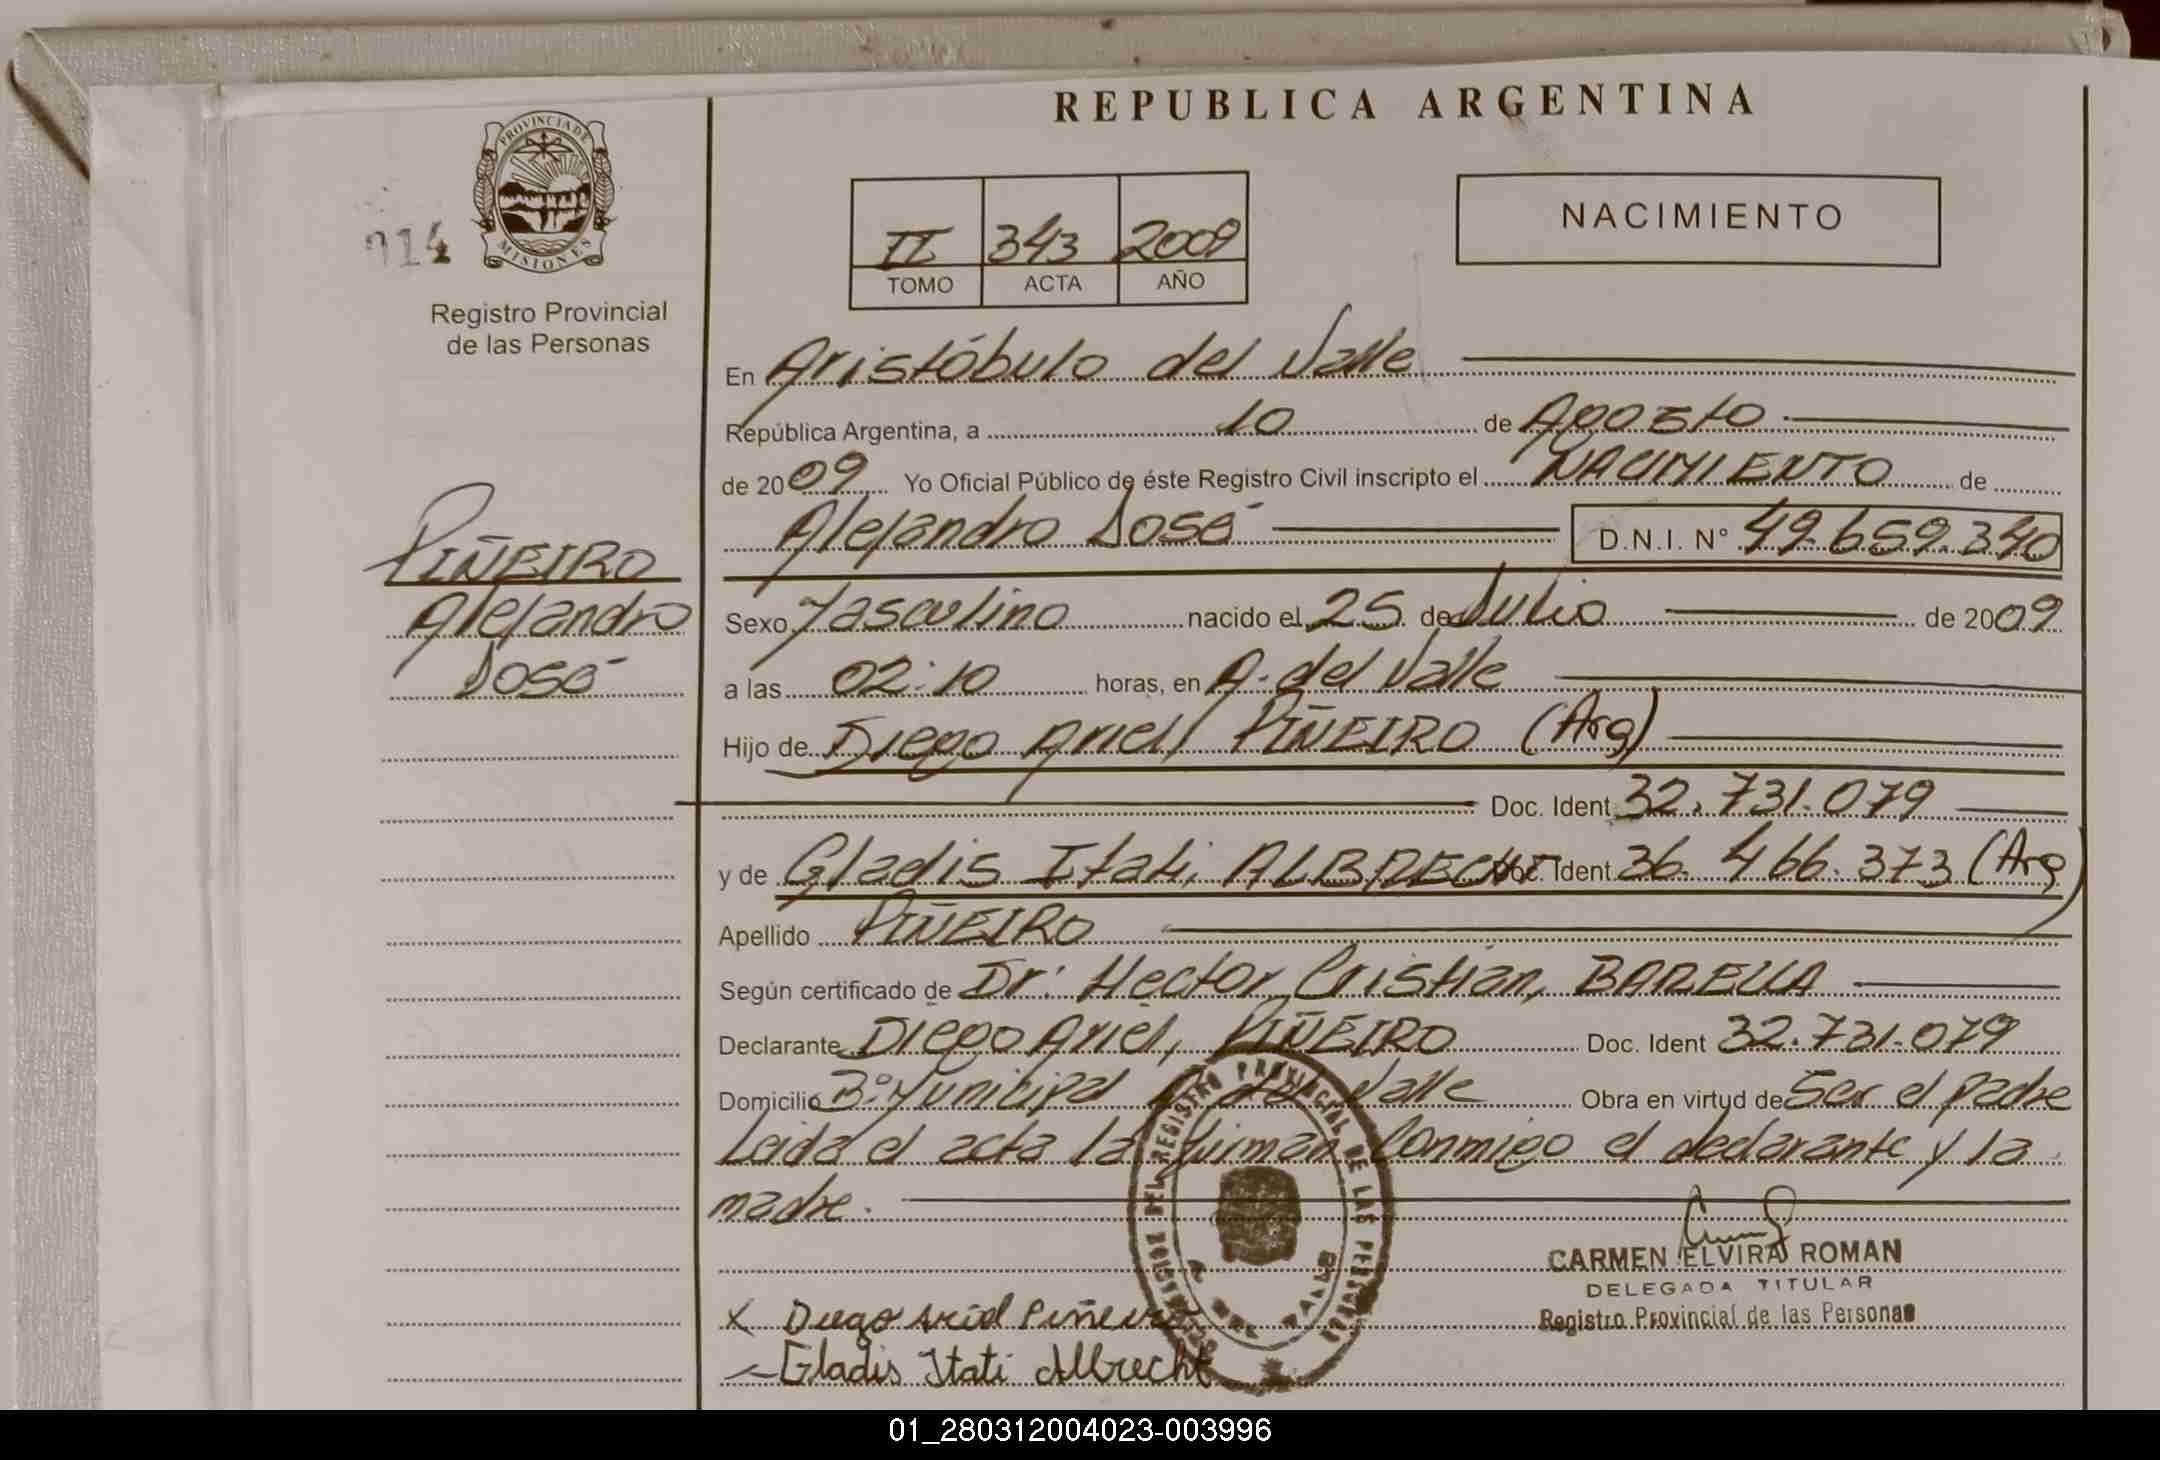 REPUBLICA ARGENTINA
PROVINCIA DE MISIONES
014
Registro Provincial
de las Personas
II 343 2009
TOMO ACTA AÑO
NACIMIENTO
En Aristóbulo del Valle
República Argentina, a 10 de Agosto
de 2009 Yo Oficial Público de éste Registro Civil inscripto el NACIMIENTO de
Alejandro José D.N.I. N° 49.659.340
PIÑEIRO
Alejandro
José
Sexo Masculino nacido el 25 de Julio de 2009
a las 02:10 horas, en A. del Valle
Hijo de Diego Ariel PIÑEIRO (Arg)
Doc. Ident 32.731.079
y de Gladis Itati, ALBRECHT Doc. Ident 36.466.373 (Arg)
Apellido PIÑEIRO
Según certificado de Dr. Hector Cristian, BARELLA
Declarante Diego Ariel, PIÑEIRO Doc. Ident 32.731.079
Domicilio B° Municipal A. del Valle Obra en virtud de Ser el padre
Leida el acta la firman Conmigo el declarante y la
madre.
CARMEN ELVIRA ROMAN
DELEGADA TITULAR
Registro Provincial de las Personas
REGISTRO PROVINCIAL DE LAS PERSONAS
X Diego Ariel Piñeiro
Gladis Itati Albrecht
01_280312004023-003996